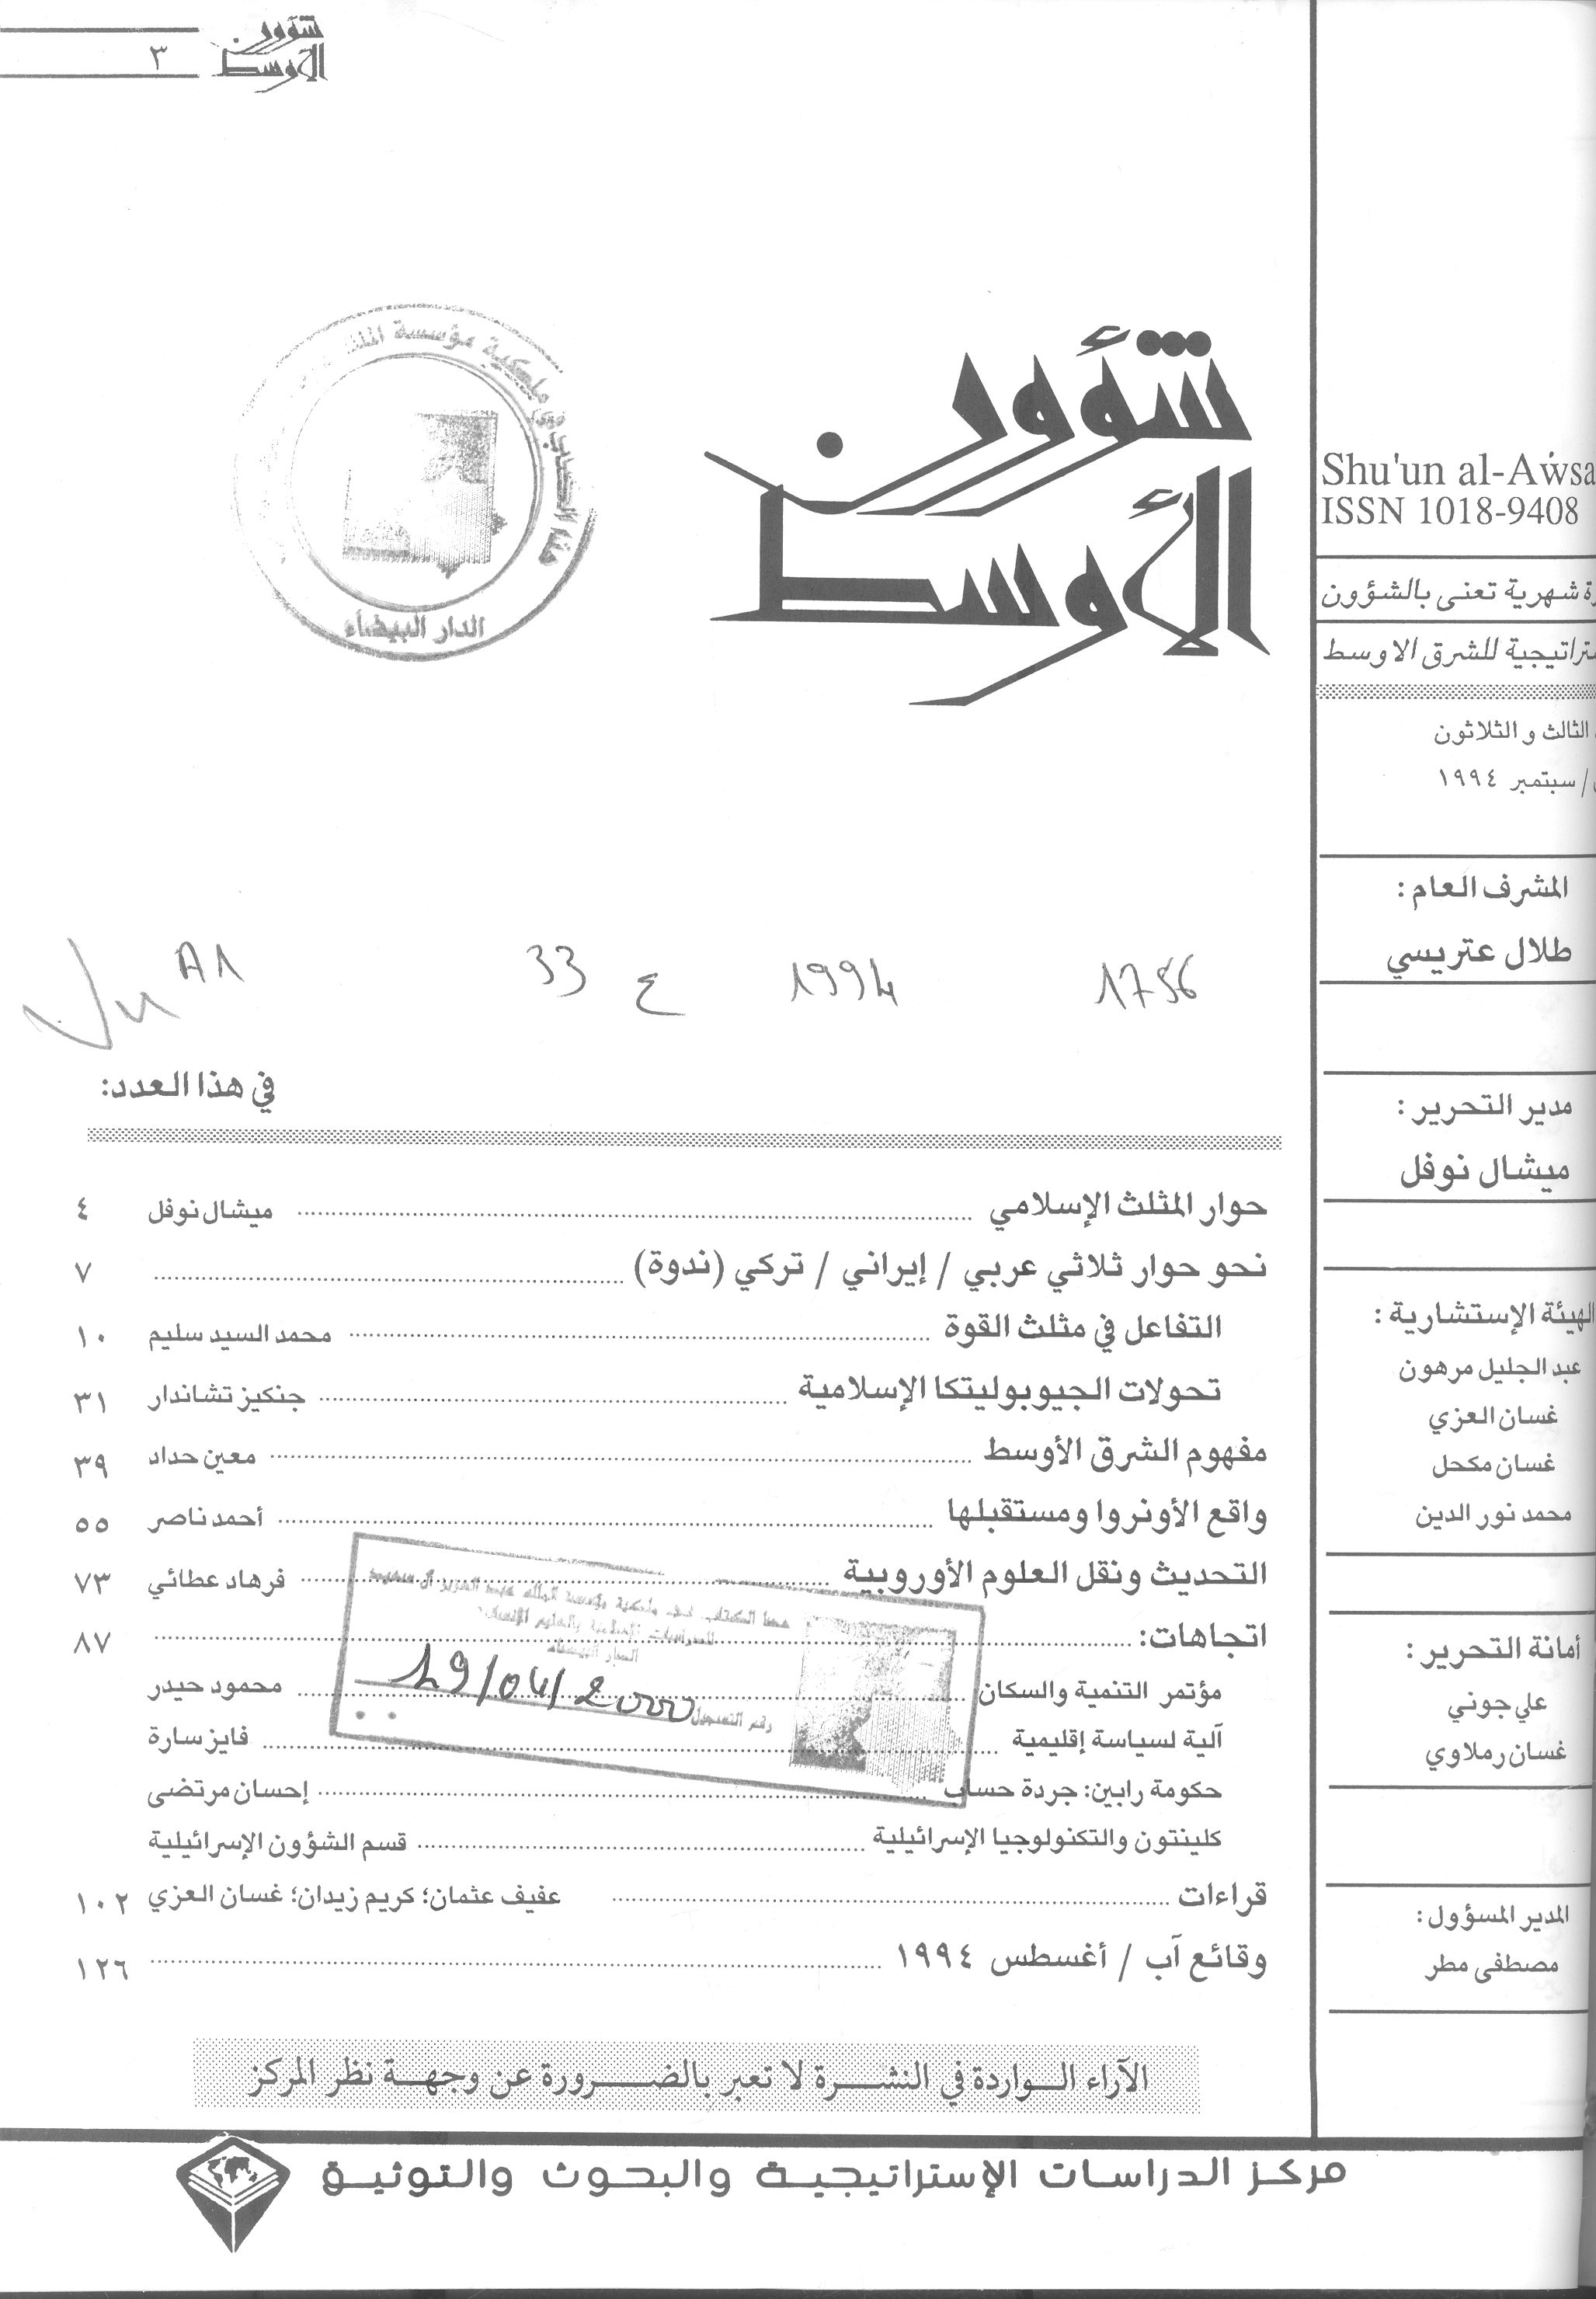 شؤون الأوسط
٣
شؤون
الأوسط
Shu'un al-Awsa
ISSN 1018-9408
شهرية تعنى بالشؤون
للشرق الاوسط
الثالث والثلاثون
/ سبتمبر ١٩٩٤
المشرف العام :
طلال عتريسي
مدير التحرير :
ميشال نوفل
الهيئة الإستشارية :
عبد الجليل مرهون
غسان العزي
غسان مكحل
محمد نور الدين
أمانة التحرير :
علي جوني
غسان رملاوي
المدير المسؤول :
مصطفى مطر
هذا الكتاب ملكية مؤسسة
الدار البيضاء
1756
1994
ع 33
A1
في هذا العدد:
حوار المثلث الإسلامي ........ ميشال نوفل ٤
نحو حوار ثلاثي عربي / إيراني / تركي (ندوة) ........ ٧
التفاعل في مثلث القوة ........ محمد السيد سليم ١٠
تحولات الجيوبوليتكا الإسلامية ........ جنكيز تشاندار ٣١
مفهوم الشرق الأوسط ........ معين حداد ٣٩
واقع الأونروا ومستقبلها ........ أحمد ناصر ٥٥
التحديث ونقل العلوم الأوروبية ........ فرهاد عطائي ٧٣
اتجاهات: ........ ٨٧
مؤتمر التنمية والسكان ........ محمود حيدر
آلية لسياسة إقليمية ........ فايز سارة
حكومة رابين: جردة حساب ........ إحسان مرتضى
كلينتون والتكنولوجيا الإسرائيلية ........ قسم الشؤون الإسرائيلية
قراءات ........ عفيف عثمان؛ كريم زيدان؛ غسان العزي ١٠٢
وقائع آب / أغسطس ١٩٩٤ ........ ١٢٦
رقم التسجيل
19/04/2000
الآراء الواردة في النشرة لا تعبر بالضرورة عن وجهة نظر المركز
مركز الدراسات الإستراتيجية والبحوث والتوثيق